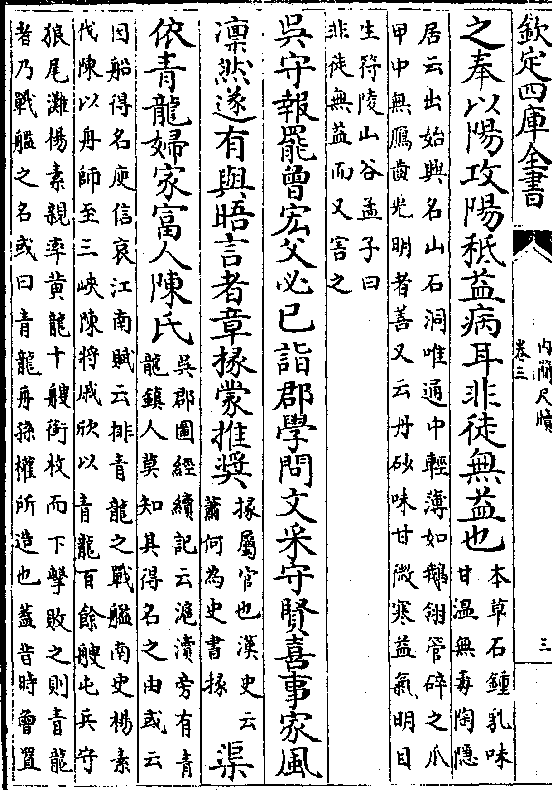 欽定四庫全書
内簡尺牘
卷三
三
之奉以陽攻陽秪益病耳非徒無益也
本草石鍾乳味
甘温無毒陶隱
居云出始興名山石洞唯通中輕薄如鵝翎管碎之爪
甲中無鴈齒光明者善又云丹砂味甘微寒益氣明目
生符陵山谷孟子曰
非徒無益而又害之
吳守報罷曾宏父必已詣郡學問文采守賢喜事家風
凛然遂有與晤言者章掾蒙推奬
掾屬官也漢史云
蕭何為史書掾
渠
依青龍婦家富人陳氏
吳郡圖經續記云滬瀆旁有青
龍鎮人莫知其得名之由或云
因船得名庾信哀江南賦云排青龍之戰艦南史楊素
伐陳以舟師至三峽陳將戚欣以青龍百餘艘屯兵守
狼尾灘楊素親率黄龍十艘銜枚而下擊敗之則青龍
者乃戰艦之名或曰青龍舟孫權所造也葢昔時嘗置